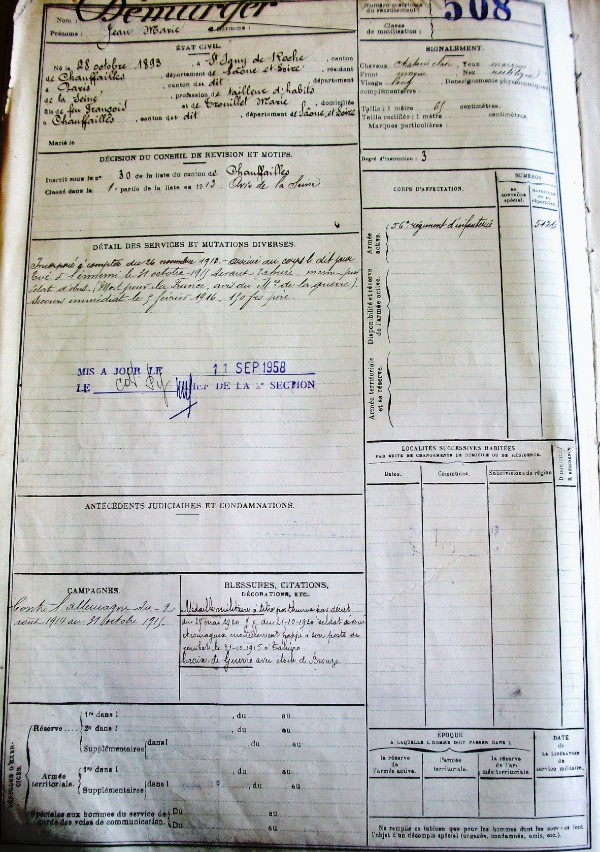 Nom : Démurger
Prénoms : Jean Marie
Numéro matricule du recrutement : 508
Classe de mobilisation :
ÉTAT CIVIL.
Né le 28 octobre 1893, à St Igny de Roche, canton
de Chauffailles, département de Saône et Loire, résidant
à Paris, canton dudit, département
de la Seine, profession de tailleur d'habits
fils de feu François et de Trouillet Marie, domiciliés
à Chauffailles, canton dudit, département de Saône et Loire
Marié le
SIGNALEMENT.
Cheveux châtain clair, Yeux
Front moyen Nez rectiligne
Visage long Renseignements physionomiques
complémentaires :
Taille : 1 mètre 65 centimètres.
Taille rectifiée : 1 mètre centimètres.
Marques particulières :
Degré d'instruction : 3
DÉCISION DU CONSEIL DE REVISION ET MOTIFS.
Inscrit sous le no 30 de la liste du canton de Chauffailles
Classé dans la 1e partie de la liste en 1913 Avis de la Seine
CORPS D'AFFECTATION.
NUMÉROS
au contrôle spécial.
Armée active.
56e régiment d'infanterie
Disponibilité et réserve de l'armée active.
Armée territoriale et sa réserve.
DÉTAIL DES SERVICES ET MUTATIONS DIVERSES.
Incorporé à compter du 26 novembre 1913 - arrivé au corps le dit jour
Tué à l'ennemi le 31 octobre 1915 devant Tahure - marne - par
éclat d'obus. (Mort pour la France, avis du Mre de la guerre).
Secours immédiat le 5 février 1916. 150 frs père.
MIS A JOUR LE 11 SEP 1958
LE DE LA 2e SECTION
LOCALITÉS SUCCESSIVES HABITÉES
PAR SUITE DE CHANGEMENTS DE DOMICILE OU DE RÉSIDENCE.
Dates.
Communes.
Subdivisions de région
ANTÉCÉDENTS JUDICIAIRES ET CONDAMNATIONS.
CAMPAGNES.
Contre l'allemagne du 2
août 1914 au 31 octobre 1915
BLESSURES, CITATIONS,
DÉCORATIONS, ETC.
Médaille militaire à titre posthume par décret
du 21-10-1920 soldat
et courageux mortellement frappé à son poste de
combat le 31-10-1915 à Tahure
Croix de Guerre avec étoile de Bronze
PÉRIODES D'EXERCICES.
Réserve
1re dans l , du au
2e dans l , du au
Supplémentaires dans l , du au
Armée territoriale.
1re dans l , du au
Supplémentaires dans l , du au
Spéciales aux hommes du service de garde des voies de communication.
Du au
Du au
ÉPOQUE
A LAQUELLE L'HOMME DOIT PASSER DANS :
la réserve de l'armée active.
l'armée territoriale.
la réserve de l'armée territoriale.
DATE
DE LA LIBÉRATION du service militaire.
Ne remplir ce tableau que pour les hommes dont les services font
l'objet d'un décompte spécial (engagés, condamnés, omis, etc.).